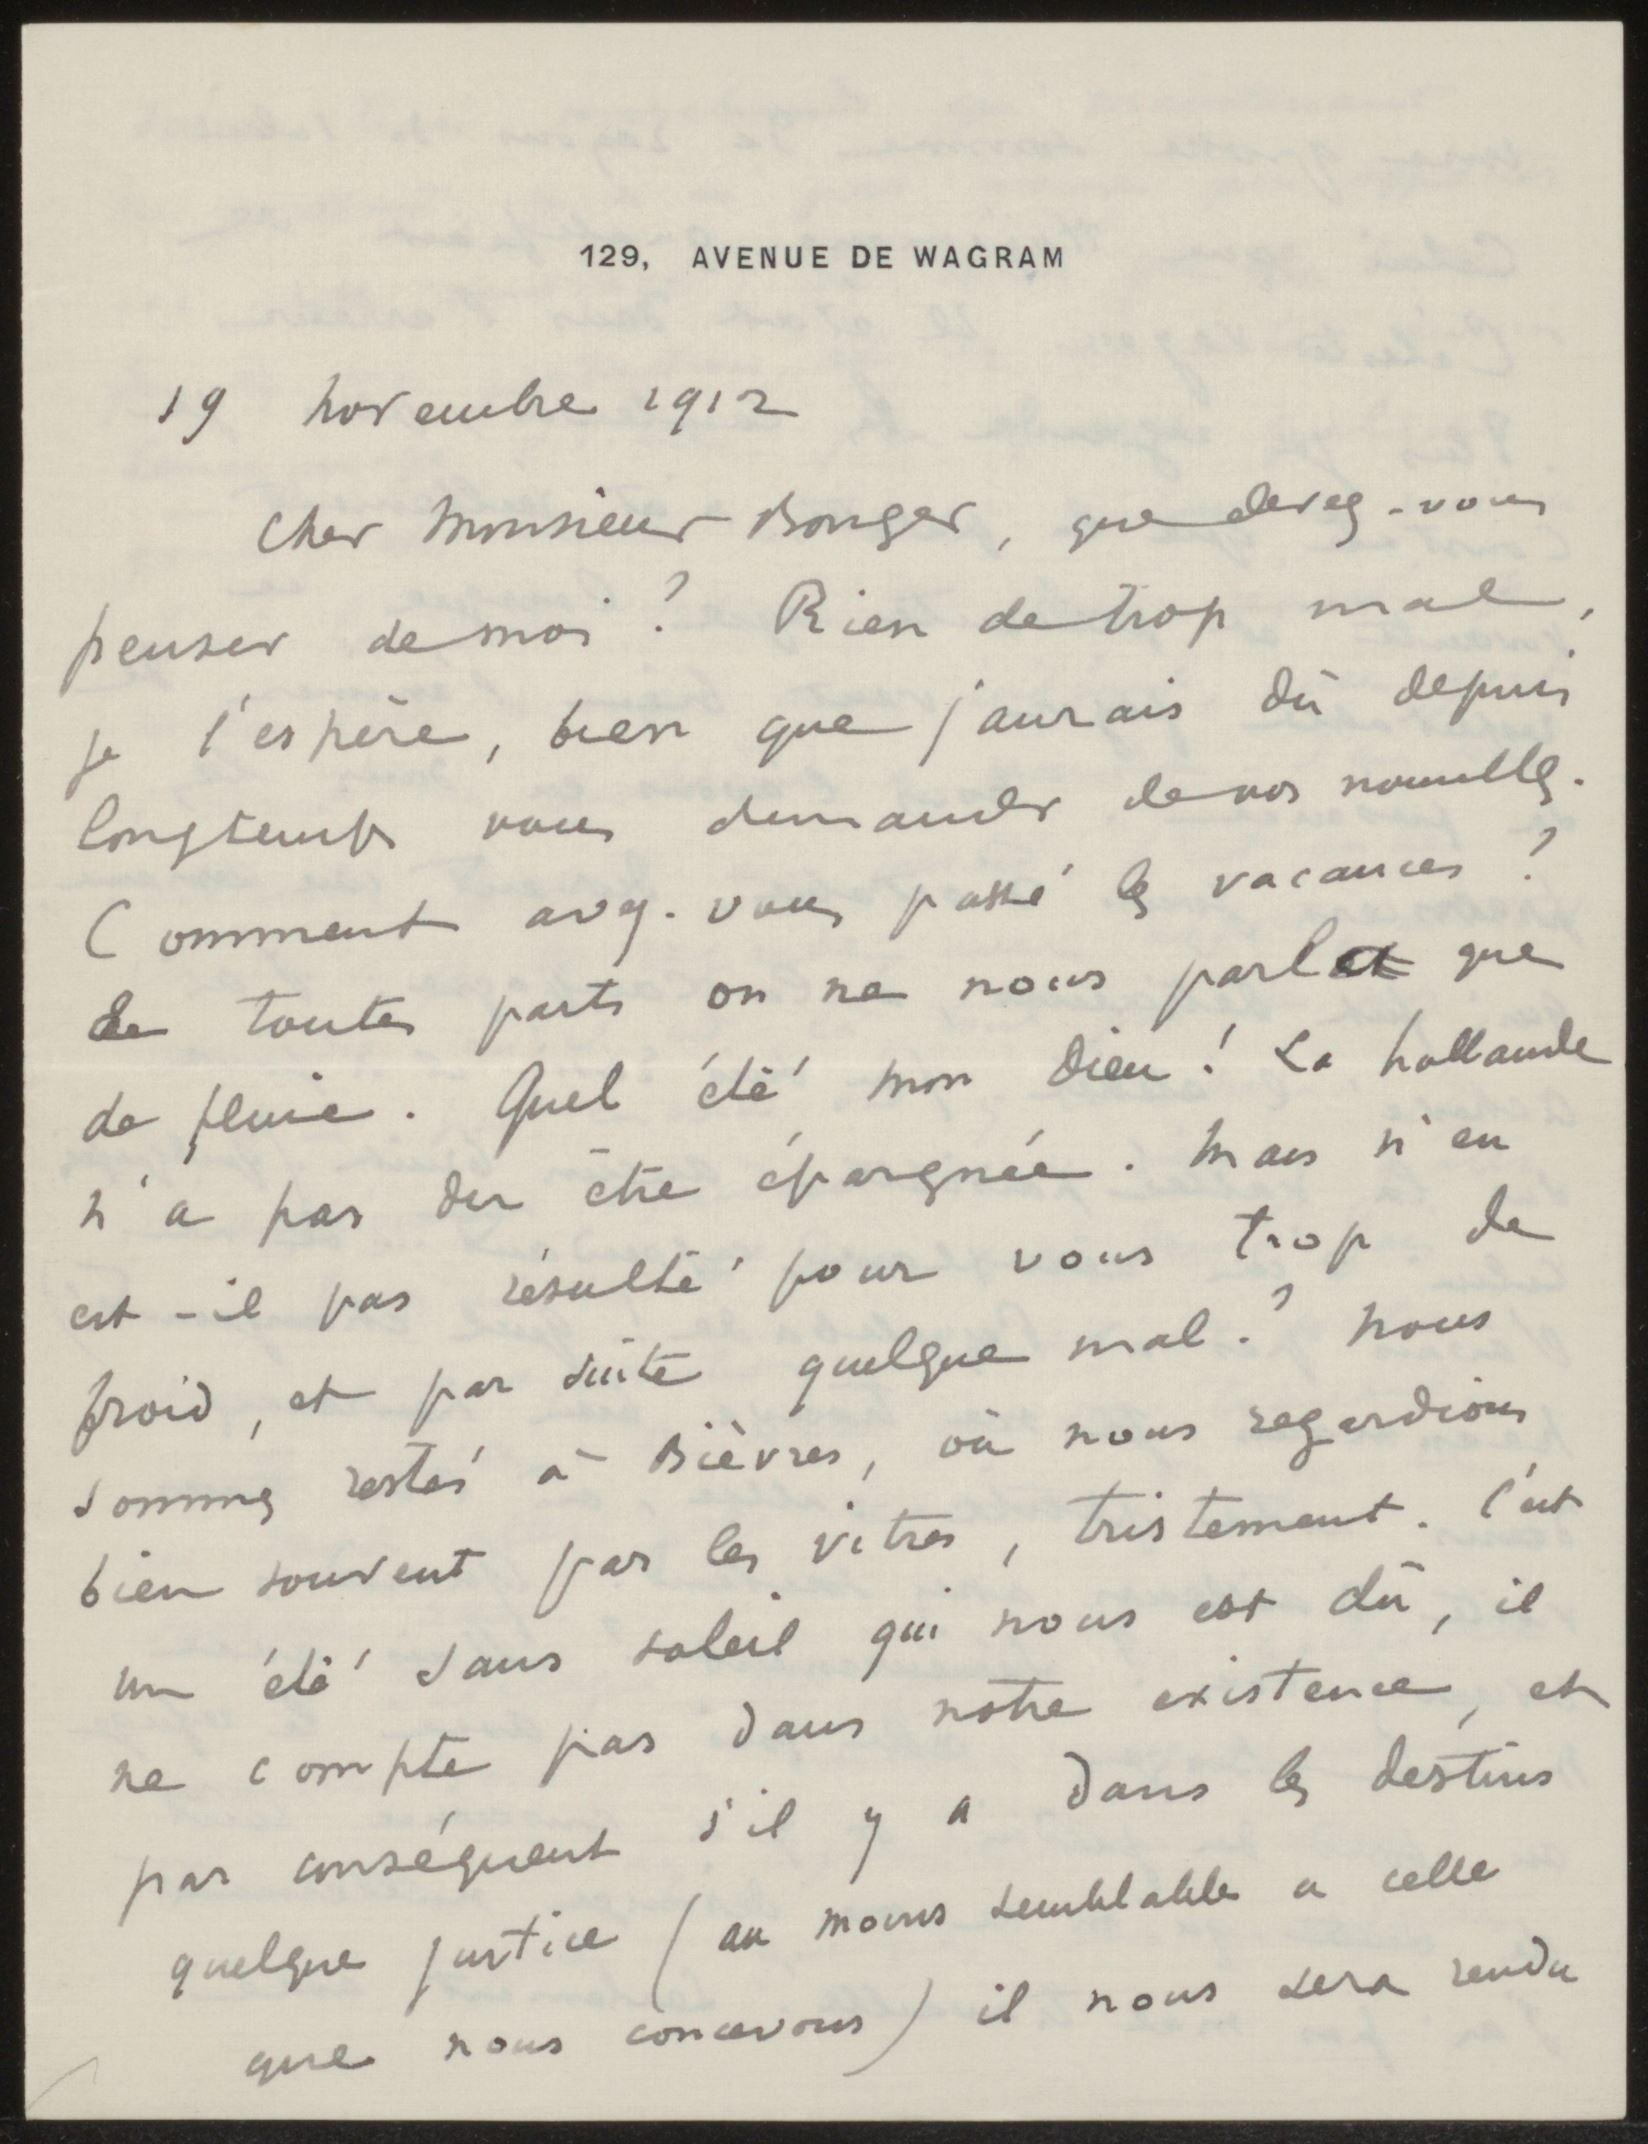 129, AVENUE DE WAGRAM
19 novembre 1912
Cher Monsieur Bonger, que devez-vous
penser de moi ? Rien de trop mal,
je l'espère, bien que j'aurais dû depuis
longtemps vous demander de vos nouvelles.
Comment avez-vous passé les vacances ?
de toutes parts on ne nous parlait que
de pluie. Quel été mon Dieu ! La hollande
n'a pas du être épargnée. Mais n'en
est-il pas résulté pour vous trop de
froid, et par suite quelque mal ? Nous
sommes restés à Bièvres, où nous regardions
bien souvent par les vitres, tristement. C'est
un été sans soleil qui nous est dû, il
ne compte pas dans notre existence, et
par conséquent s'il y a dans les destins
quelque justice (au moins semblable a celle
que nous concevons) il nous sera rendu